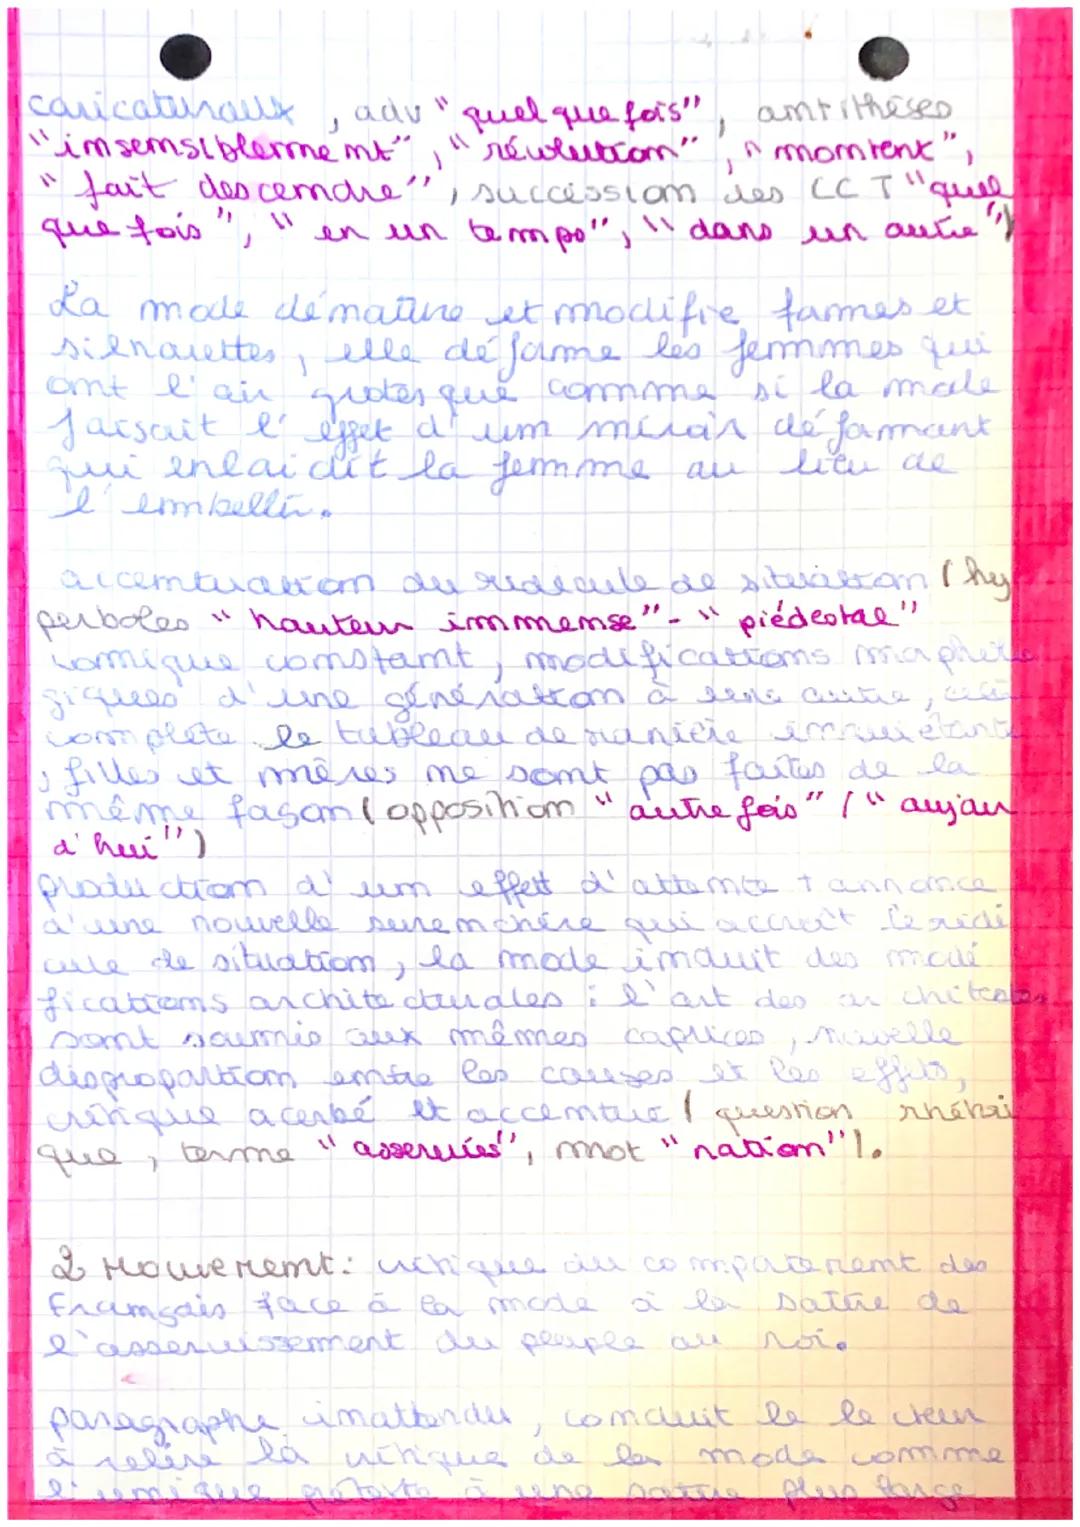 caricaturaux, adv "quelque fois", antithèses
"insensiblement", "révolution", "montent",
"fait descendre", succession des CCT "quel
que fois", "en un temps", "dans un autre")
La mode dénature et modifie formes et
silhouettes, elle déforme les femmes qui
ont l'air grotesque comme si la mode
faisait l'effet d'un miroir déformant
qui enlaidit la femme au lieu de
l'embellir.
accentuation du ridicule de situation (hy
perboles "hauteur immense" - "piédestal"
comique constant, modifications morpholo
giques d'une génération à une autre, ceci
complète le tableau de manière inquiétante
, filles et mères ne sont pas faites de la
même façon (opposition "autre fois" / "aujour
d'hui")
production d'un effet d'attente + annonce
d'une nouvelle surenchère qui accroît le ridi
cule de situation, la mode induit des modi
fications architecturales : l'art des architectes
sont soumis aux mêmes caprices, nouvelle
disproportion entre les causes et les effets,
critique acerbé et accentué (question rhétori
que, terme "asservies", mot "nation").
2 Mouvement: critique du comportement des
Français face à la mode à la satire de
l'asservissement du peuple au roi.
paragraphe inattendu, conduit le lecteur
à relire la critique de la mode comme
l'unique prétexte à une satire plus large